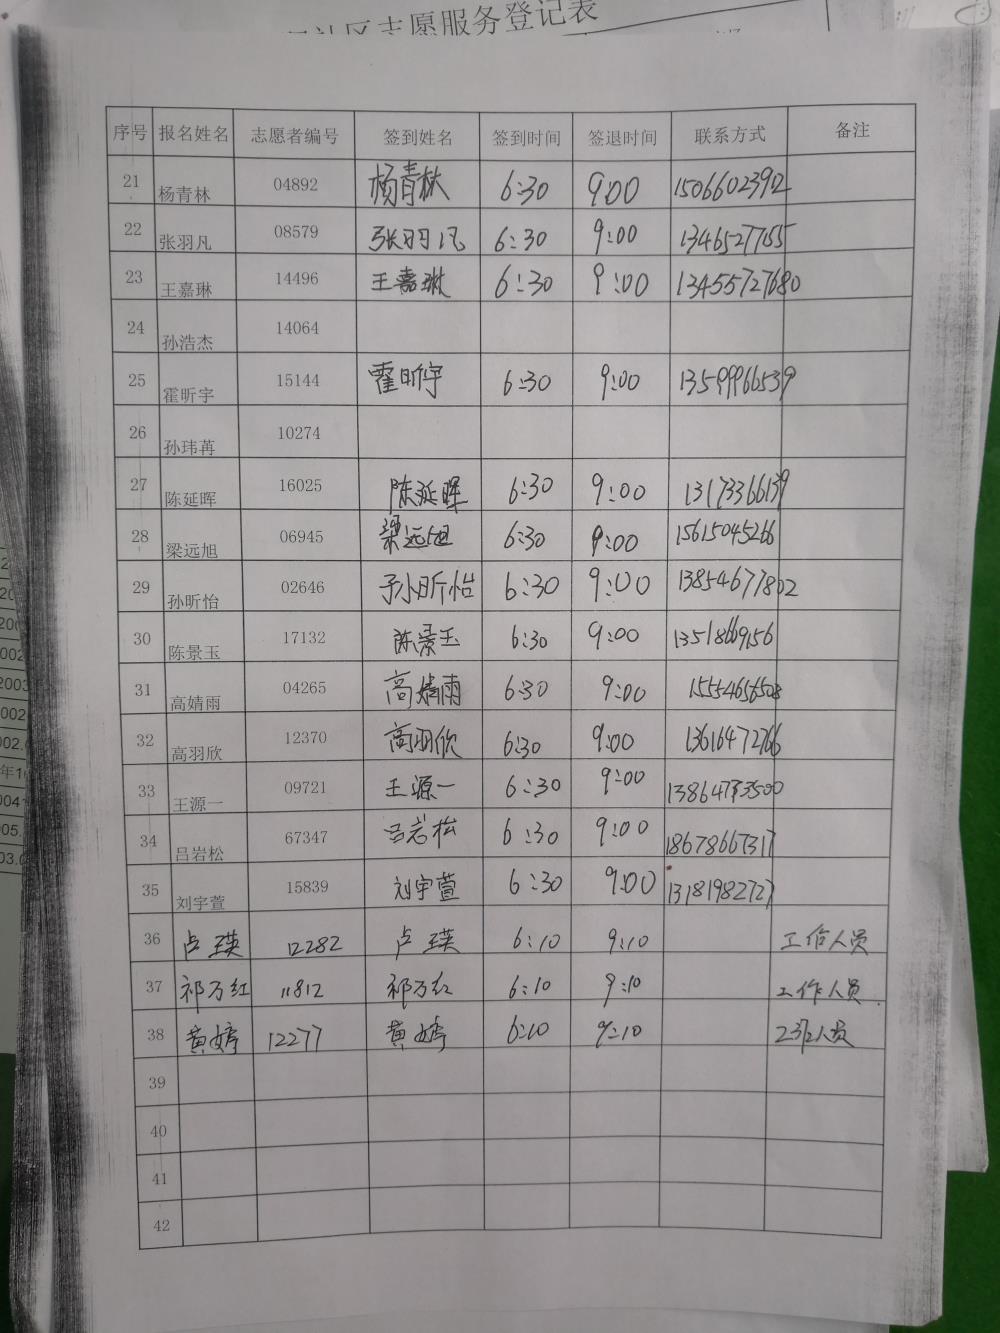 社区志愿服务登记表
序号 报名姓名 志愿者编号 签到姓名 签到时间 签退时间 联系方式 备注
21 杨青林 04892 杨青林 6:30 9:00 15066023912
22 张羽凡 08579 张羽凡 6:30 9:00 13465277155
23 王嘉琳 14496 王嘉琳 6:30 9:00 13455727680
24 孙浩杰 14064
25 霍昕宇 15144 霍昕宇 6:30 9:00 13599966539
26 孙玮苒 10274
27 陈延晖 16025 陈延晖 6:30 9:00 13173366139
28 梁远旭 06945 梁远旭 6:30 9:00 15615045266
29 孙昕怡 02646 孙昕怡 6:30 9:00 13854677802
30 陈景玉 17132 陈景玉 6:30 9:00 13518669156
31 高婧雨 04265 高婧雨 6:30 9:00 15554656508
32 高羽欣 12370 高羽欣 6:30 9:00 13616472766
33 王源一 09721 王源一 6:30 9:00
34 吕岩松 67347 吕岩松 6:30 9:00 18678667317
35 刘宇萱 15839 刘宇萱 6:30 9:00 13181982727
36 卢瑛 12282 卢瑛 6:10 9:10 工作人员
37 祁万红 11812 祁万红 6:10 9:10 工作人员
38 黄婷 12277 黄婷 6:10 9:10 人员
39
40
41
42